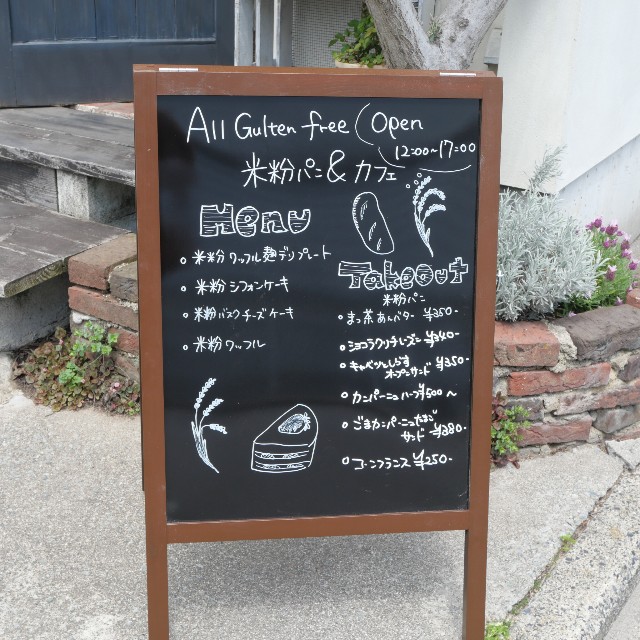 All Gulten free
Open
12:00~17:00
米粉パン&カフェ
Menu
米粉ワッフル麺デリプレート
米粉シフォンケーキ
米粉バスクチーズケーキ
米粉ワッフル
TakeOut
米粉パン
まっ茶あんバター ¥350-
ショコラクリチレーズン ¥340-
キャベツとしらす
オープンサンド ¥350-
カンパーニュハーフ¥500~
ごまカンパーニュたまご
サンド ¥380-
コーンフランス ¥250-